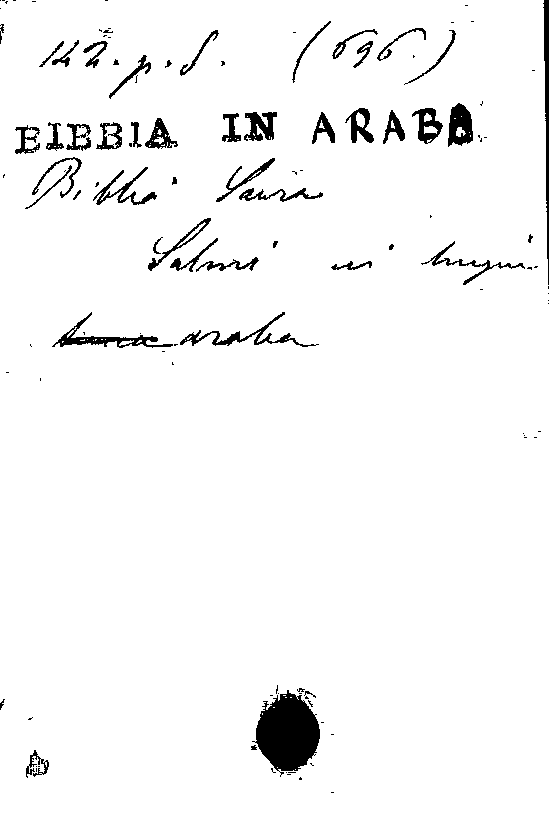 142. p. S. (696.)
BIBBIA IN ARABO
Bibbia Sacra
Salmi in lingua
araba